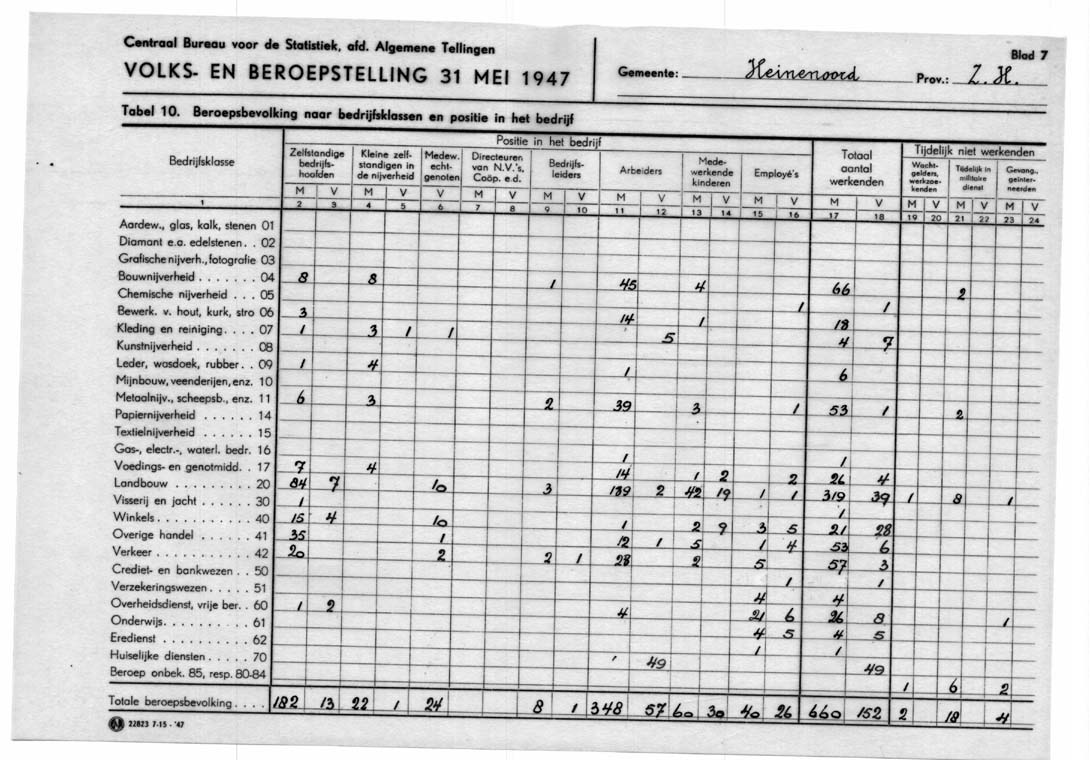 Centraal Bureau voor de Statistiek, afd. Algemene Tellingen
VOLKS- EN BEROEPSTELLING 31 MEI 1947
Gemeente: Heinenoord Prov.: Z. H.
Blad 7
Tabel 10. Beroepsbevolking naar bedrijfsklassen en positie in het bedrijf
Bedrijfsklasse
Positie in het bedrijf
Zelfstandige bedrijfs-hoofden
Kleine zelf-standigen in de nijverheid
Medew. echt-genoten
Directeuren van N.V.'s, Coöp. e.d.
Bedrijfs-leiders
Arbeiders
Mede-werkende kinderen
Employé's
Totaal aantal werkenden
Tijdelijk niet werkenden
Wacht-gelders, werkzoe-kenden
Tijdelijk in militaire dienst
Gevang., geïnter-neerden
M V M V V M V M V M V M V M V M V M V M V M V
1 2 3 4 5 6 7 8 9 10 11 12 13 14 15 16 17 18 19 20 21 22 23 24
Aardew., glas, kalk, stenen 01
Diamant e.a. edelstenen. . 02
Grafische nijverh., fotografie 03
Bouwnijverheid . . . . . . . 04 8 8 1 45 4 66 2
Chemische nijverheid . . . 05 1 1
Bewerk. v. hout, kurk, stro 06 3 14 1 18
Kleding en reiniging. . . . 07 1 3 1 1 5 4 7
Kunstnijverheid . . . . . . . 08
Leder, wasdoek, rubber. . 09 1 4 1 6
Mijnbouw, veenderijen, enz. 10
Metaalnijv., scheepsb., enz. 11 6 3 2 39 3 1 53 1 2
Papiernijverheid . . . . . . 14
Textielnijverheid . . . . . . 15
Gas-, electr.-, waterl. bedr. 16 1 1
Voedings- en genotmidd. . 17 7 4 14 1 2 2 26 4
Landbouw . . . . . . . . . 20 84 7 10 3 189 2 42 19 1 1 319 39 1 8 1
Visserij en jacht . . . . . . 30 1 1
Winkels. . . . . . . . . . . 40 15 4 10 1 2 9 3 5 21 28
Overige handel . . . . . . . 41 35 1 12 1 5 1 4 53 6
Verkeer . . . . . . . . . . . 42 20 2 2 1 28 2 5 57 3
Crediet- en bankwezen . . 50 1 1
Verzekeringswezen . . . . . 51 4 4
Overheidsdienst, vrije ber. . 60 1 2 4 21 6 26 8 1
Onderwijs. . . . . . . . . . 61 4 5 4 5
Eredienst . . . . . . . . . . 62 1 1
Huiselijke diensten . . . . . 70 49 49
Beroep onbek. 85, resp. 80-84 1 6 2
Totale beroepsbevolking . . . . 182 13 22 1 24 8 1 348 57 60 30 40 26 660 152 2 18 4
22823 7-15 - '47